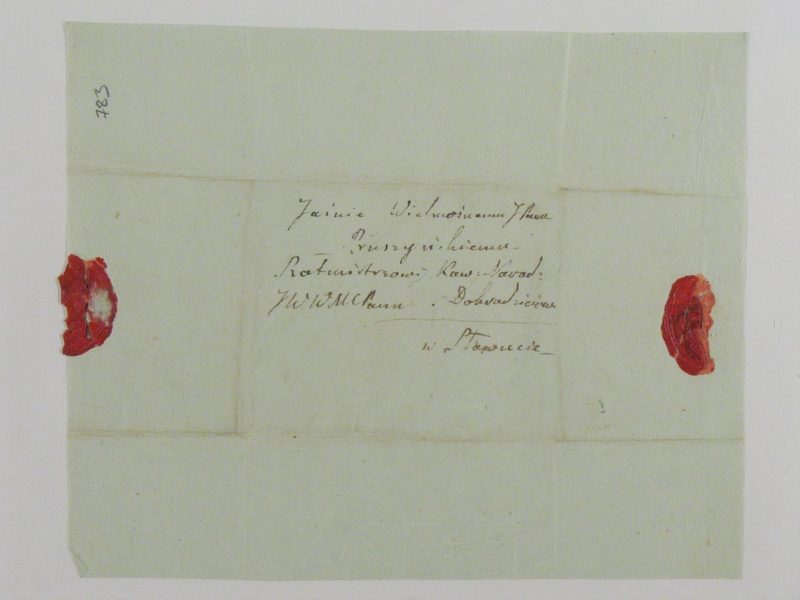 783
Jaśnie Wielmożnemu JPanu
Pruszyńskiemu
Rotmistrzowi Kaw: Narod:
JWWMCPanu Dobrodziciowi
w Sławucie